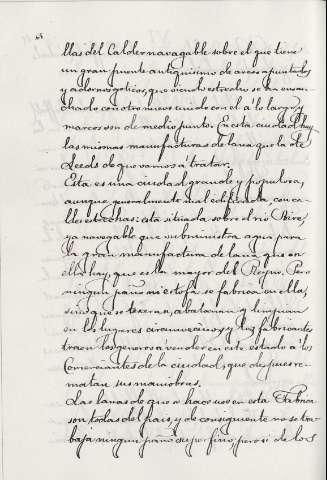 llas del Calder navagable sobre el que tiene
un gran puente antiquisimo de arcos apuntados
y adornos goticos, que siendo estrecho se ha ensan-
chado con otro nuevo unido con el a' lo largo, y
marcos son de medio punto. En esta ciudad hay
las mismas manufacturas de lana que la de
Leeds de que vamos a' tratar.
Esta es una ciudad grande y populosa,
aunque generalmente mal edificada con ca-
lles estrechas: esta situada sobre el rio Aire,
ya navegable que subministra agua para
la gran manufactura de lana, que en
ella hay, que es la mayor del Reyno. Pero
ningun paño ni estofa se fabrica en ella,
sino que se texeran, abatanan y limpian
en los lugares circumvecinos, y los fabricantes
traen los generos a' vender en este estado a' los
Comerciantes de la ciudad, que despues re-
matan sus maniobras.
Las lanas de que se hace uso en esta Fabrica
son todas del pais, y de consiguiente no se tra-
baja ningun paño superfino, pero si de los